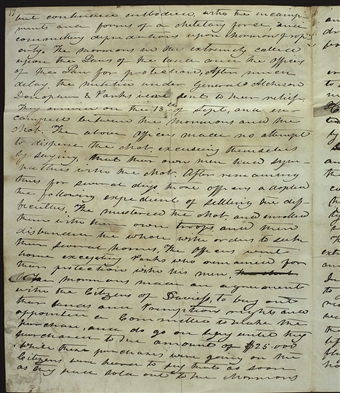 but continued embodied, with the incamp-
ments and forms of a military force and
committing depredations upon Mormon prop-
erty. The Mormons in this extremity called
upon the Laws of the land and the officers
of the Law for protection. After much
delay the militia under Generals Atchison
Doniphan & Parks were sent to their relief.
They arrived on the 13th of Sept. and en-
camped between the Mormons and the
Mob. The above officers made no attempt
to disperse the Mob, excusing themselves
by saying, that their own men had sym-
pathies with the Mob. After remaining
thus for several days those officers adopted
the following expedient of settling the dif-
ficulties. They mustered the Mob, and enrolled
them with their own troops and then
disbanded the whole with orders to seek
their several homes. The officers went
home excepting Parks who remained for
their protection with his men.
The Mormons made an agreement
with the Citizens of Daviess, to buy out
their lands and pre-emption rights and
appointed a Committee to make the
purchase, and to go on buying till they
purchased to the amount of $25.000
While these purchases were going on the
Citizens were heard to say that as soon
as they had sold out to the Mormons